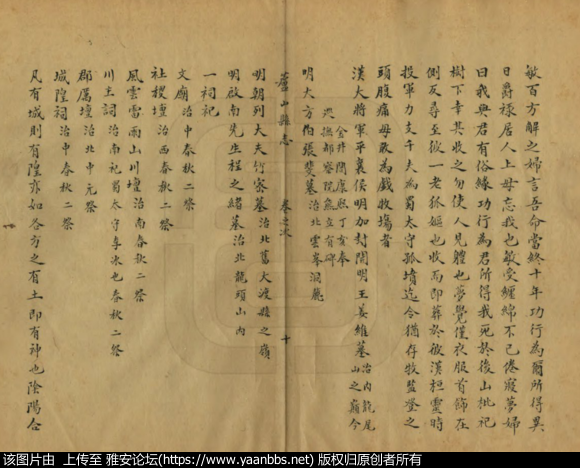 敏百方解之婦言吾命當終十年功行為爾所得異
日爵祿居人上毋忘我也敏受纏綿不已倦寢夢婦
曰我與君有俗緣功行為君所得我死於後山枇杷
樹下幸其收之勿使人見軆也夢覺僅衣服首飾在
側反尋至彼一老狐嫗也收而即葬於敏漢桓靈時
投軍力支千夫為蜀太守孤墳迄今猶存牧監登之
頭腹痛毋敢為戲牧塲者
漢大將軍平襄侯明加封開明王姜維墓治内龍尾山之巔今
金井閉康熙丁亥奉
撫部察院熊立有碑
明大方伯張斐墓治北雲峯洞麓
蘆山縣志 卷之次 十
明朝列大夫竹家墓治北舊大渡縣之嶺
明啟南先生程之緒墓治北龍頭山内
一祠祀
文廟治中春秋二祭
社稷壇治西春秋二祭
風雲雷雨山川壇治南春秋二祭
川主詞治南祀蜀太守李冰也春秋二祭
郡厲壇治北中元祭
城隍祠治中春秋二祭
凡有城則有隍亦如各方之有土即有神也陰陽合
该图片由 上传至 雅安论坛(https://www.yaanbbs.net) 版权归原创者所有